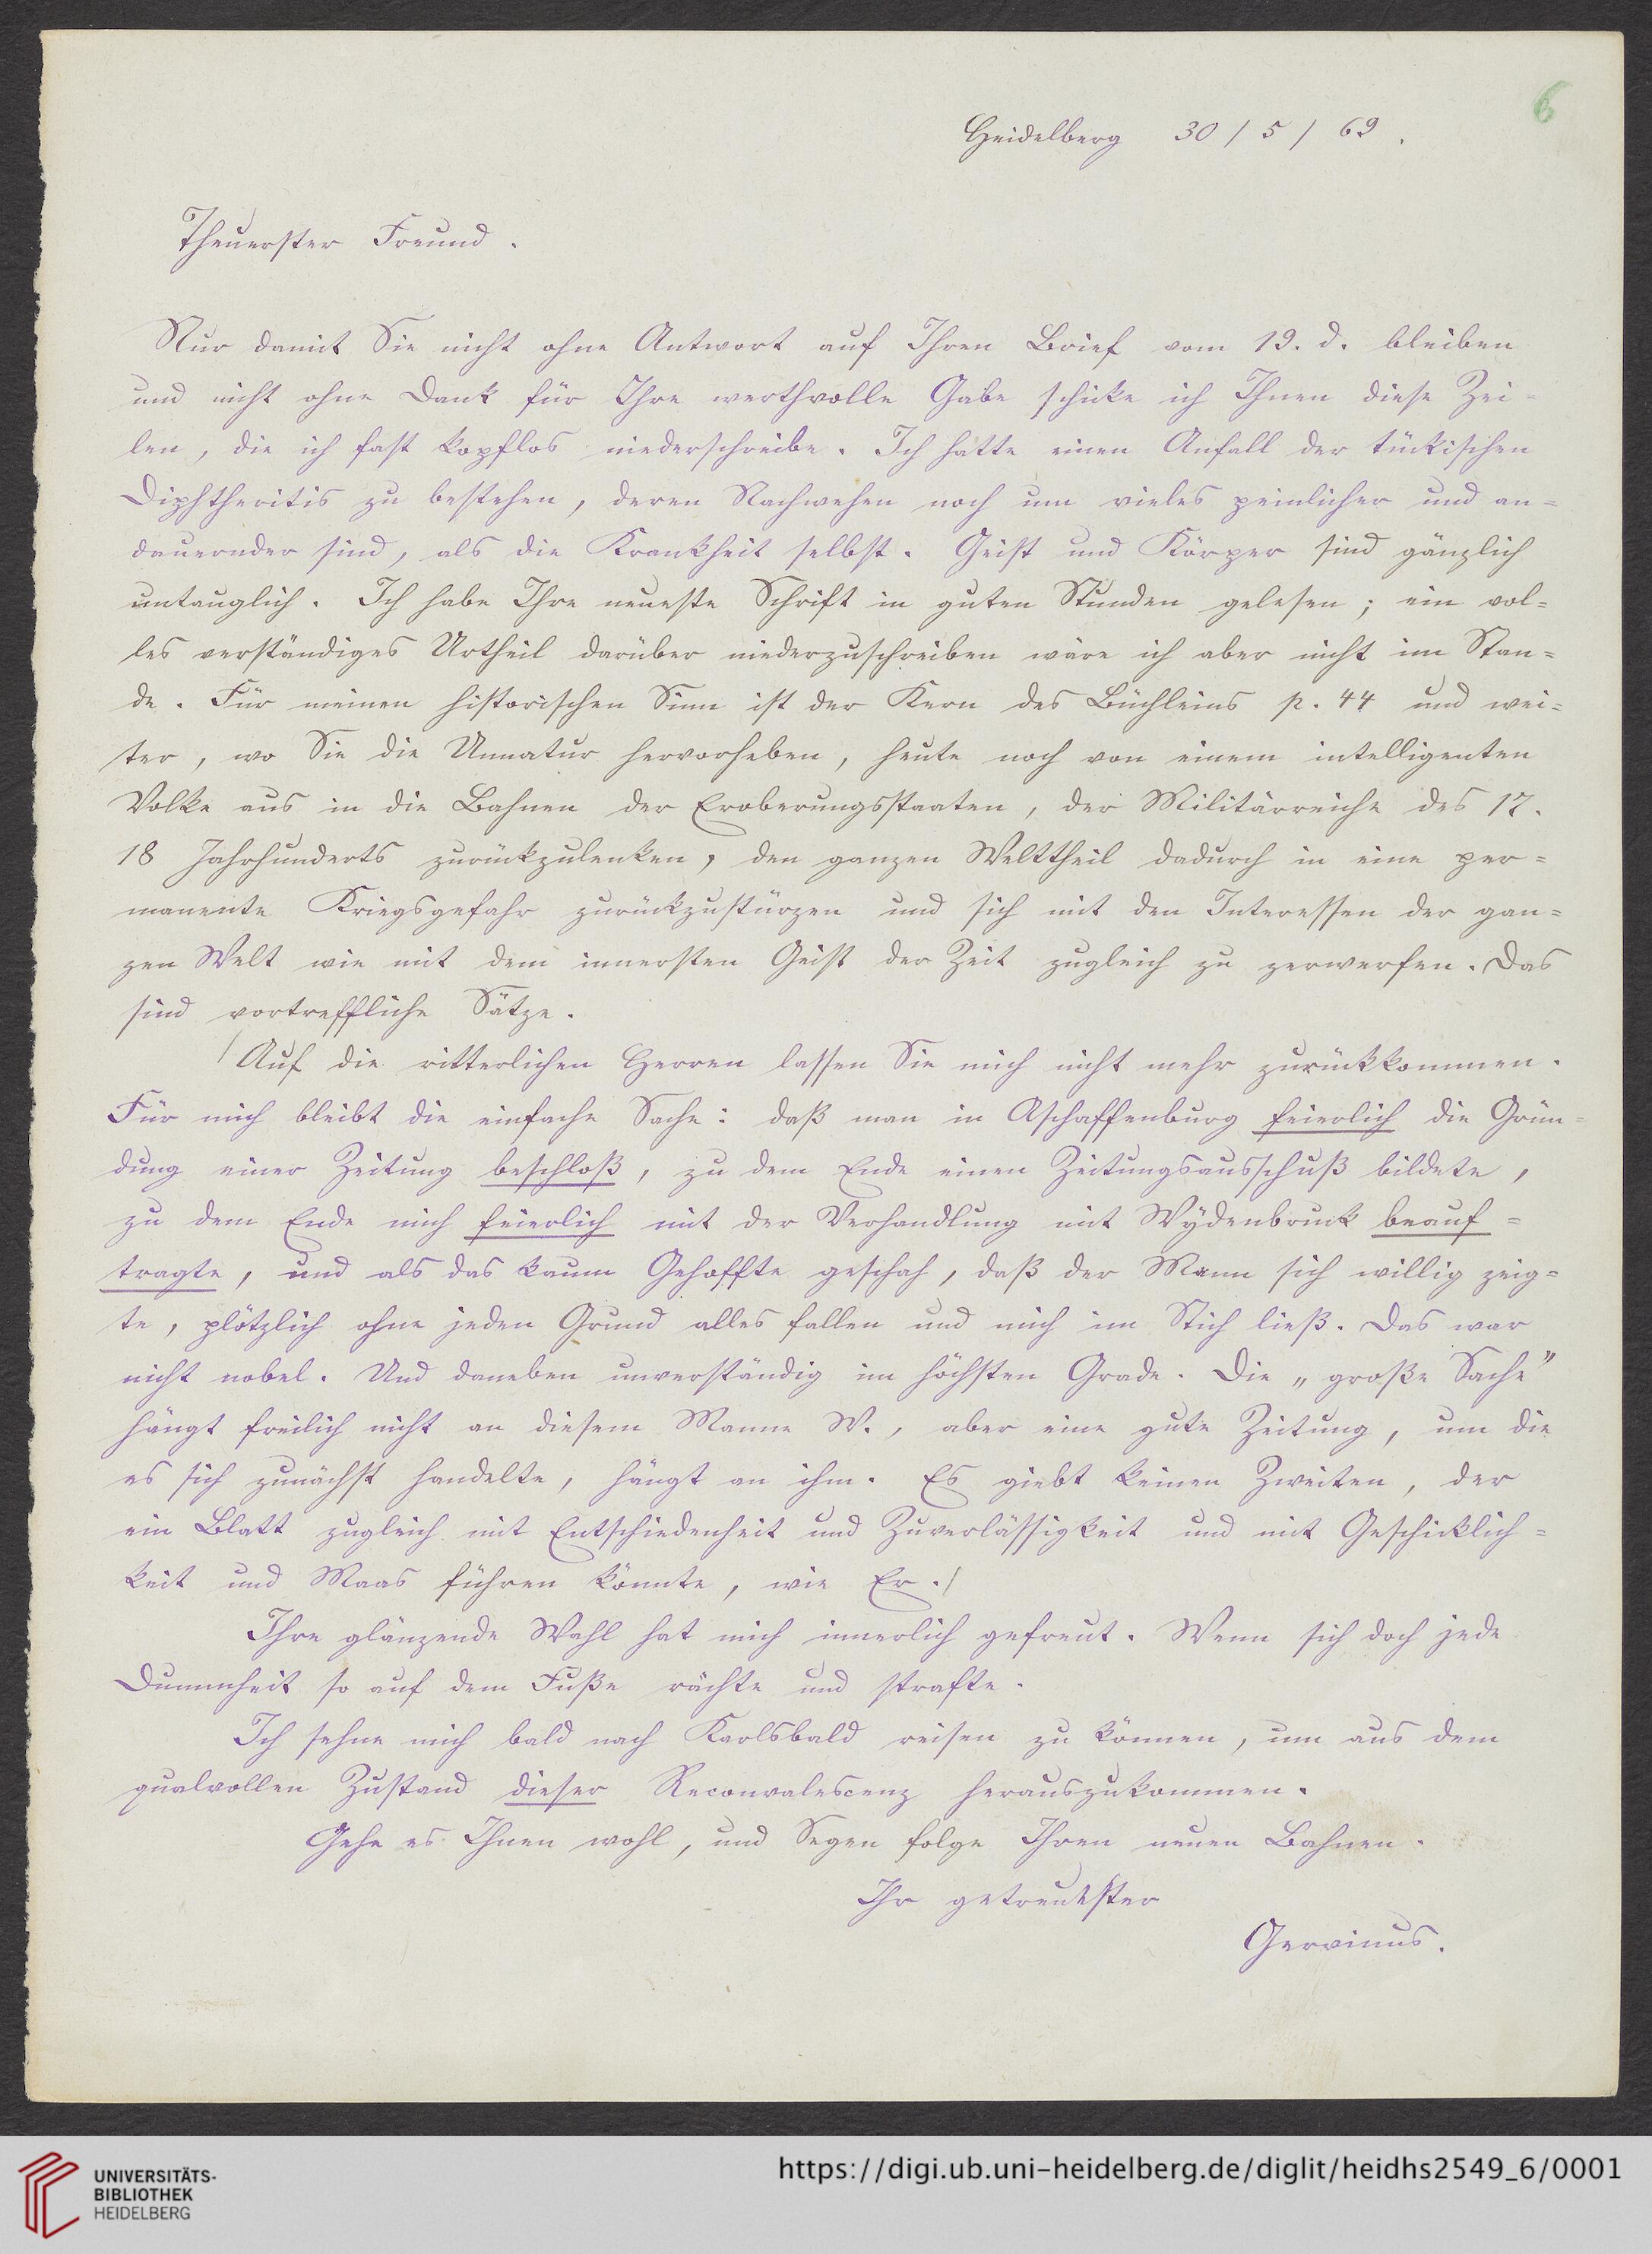 6
Heidelberg 30/5/69.
Theuerster Freund.
Nur damit Sie nicht ohne Antwort auf Ihren Brief vom 19. d. bleiben
und nicht ohne Dank für Ihre werthvolle Gabe schicke ich Ihnen diese Zei-
len, die ich fast kopflos niederschreibe. Ich hatte einen Anfall der tückischen
Diphtheritis zu bestehen, deren Nachwehen noch um vieles peinlicher und an=
dauernder sind, als die Krankheit selbst. Geist und Körper sind gänzlich
untauglich. Ich habe Ihre neueste Schrift in guten Stunden gelesen; ein vol=
les verständiges Urtheil darüber niederzuschreiben wäre ich aber nicht im Stan=
de. Für meinen historischen Sinn ist der Kern des Büchleins p. 44 und wei=
ter, wo Sie die Unnatur hervorheben, heute noch von einem intelligenten
Volke aus in die Bahnen der Eroberungsstaaten, der Militärreiche des 17.
18 Jahrhunderts zurückzulenken, den ganzen Welttheil dadurch in eine per=
manente Kriegsgefahr zurückzustürzen und sich mit den Interessen der gan=
zen Welt wie mit dem innersten Geist der Zeit zugleich zu zerwerfen. Das
sind vortreffliche Sätze.
/Auf die ritterlichen Herren lassen Sie mich nicht mehr zurückkommen.
Für mich bleibt die einfache Sache: daß man in Aschaffenburg feierlich die Grün=
dung einer Zeitung beschloß, zu dem Ende einen Zeitungsausschuß bildete,
zu dem Ende mich feierlich mit der Verhandlung mit Wydenbruck beauf=
tragte, und als das kaum Gehoffte geschah, daß der Mann sich willig zeig=
te, plötzlich ohne jeden Grund alles fallen und mich im Stich ließ. Das war
nicht nobel. Und daneben unverständig im höchsten Grade. Die „große Sache"
hängt freilich nicht an diesem Manne W., aber eine gute Zeitung, um die
es sich zunächst handelte, hängt an ihm. Es giebt keinen Zweiten, der
ein Blatt zugleich mit Entschiedenheit und Zuverlässigkeit und mit Geschicklich=
keit und Maas führen könnte, wie Er./
Ihre glänzende Wahl hat mich innerlich gefreut. Wenn sich doch jede
Dummheit so auf dem Fuße rächte und strafte.
Ich sehne mich bald nach Karlsbald reisen zu können, um aus dem
qualvollen Zustand dieser Reconvalescenz herauszukommen.
Gehe es Ihnen wohl, und Segen folge Ihren neuen Bahnen.
Ihr getreuester
Gervinus.
UNIVERSITÄTS-
BIBLIOTHEK
HEIDELBERG
https://digi.ub.uni-heidelberg.de/diglit/heidhs2549_6/0001